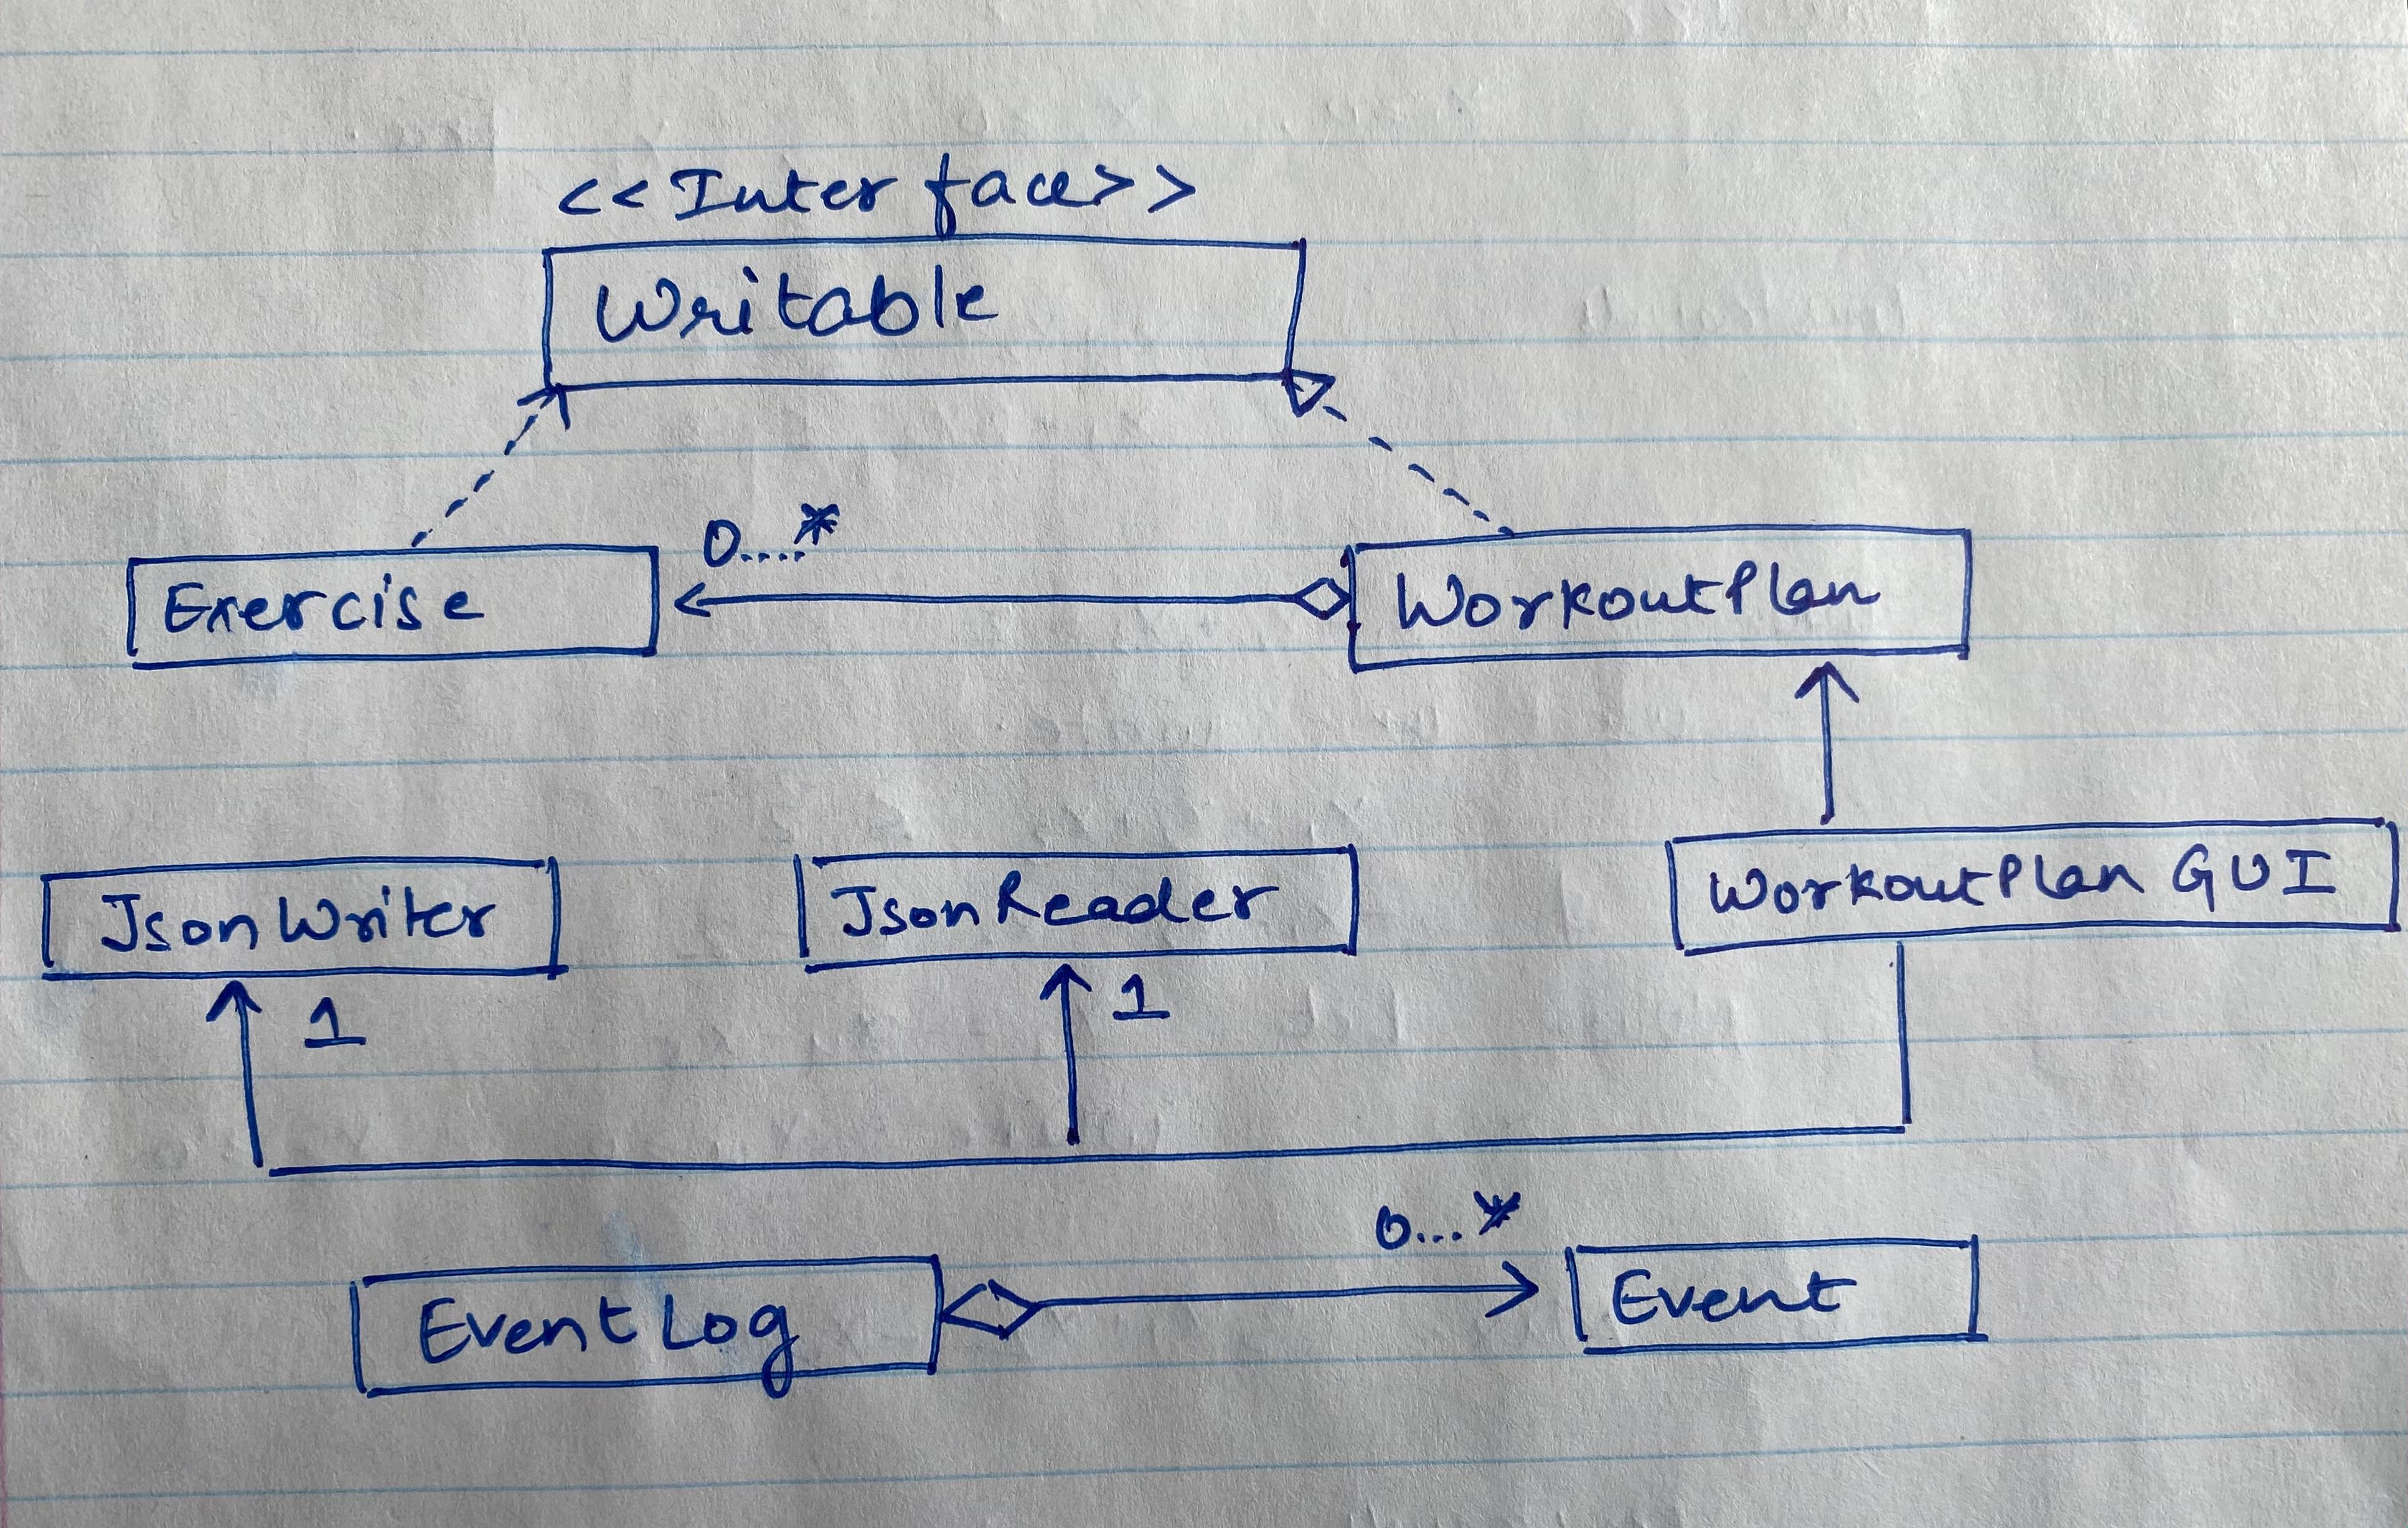 <<Interface>>
Writable
0....*
Exercise
WorkoutPlan
JsonWriter
JsonReader
WorkoutPlan GUI
1
1
0...*
EventLog
Event